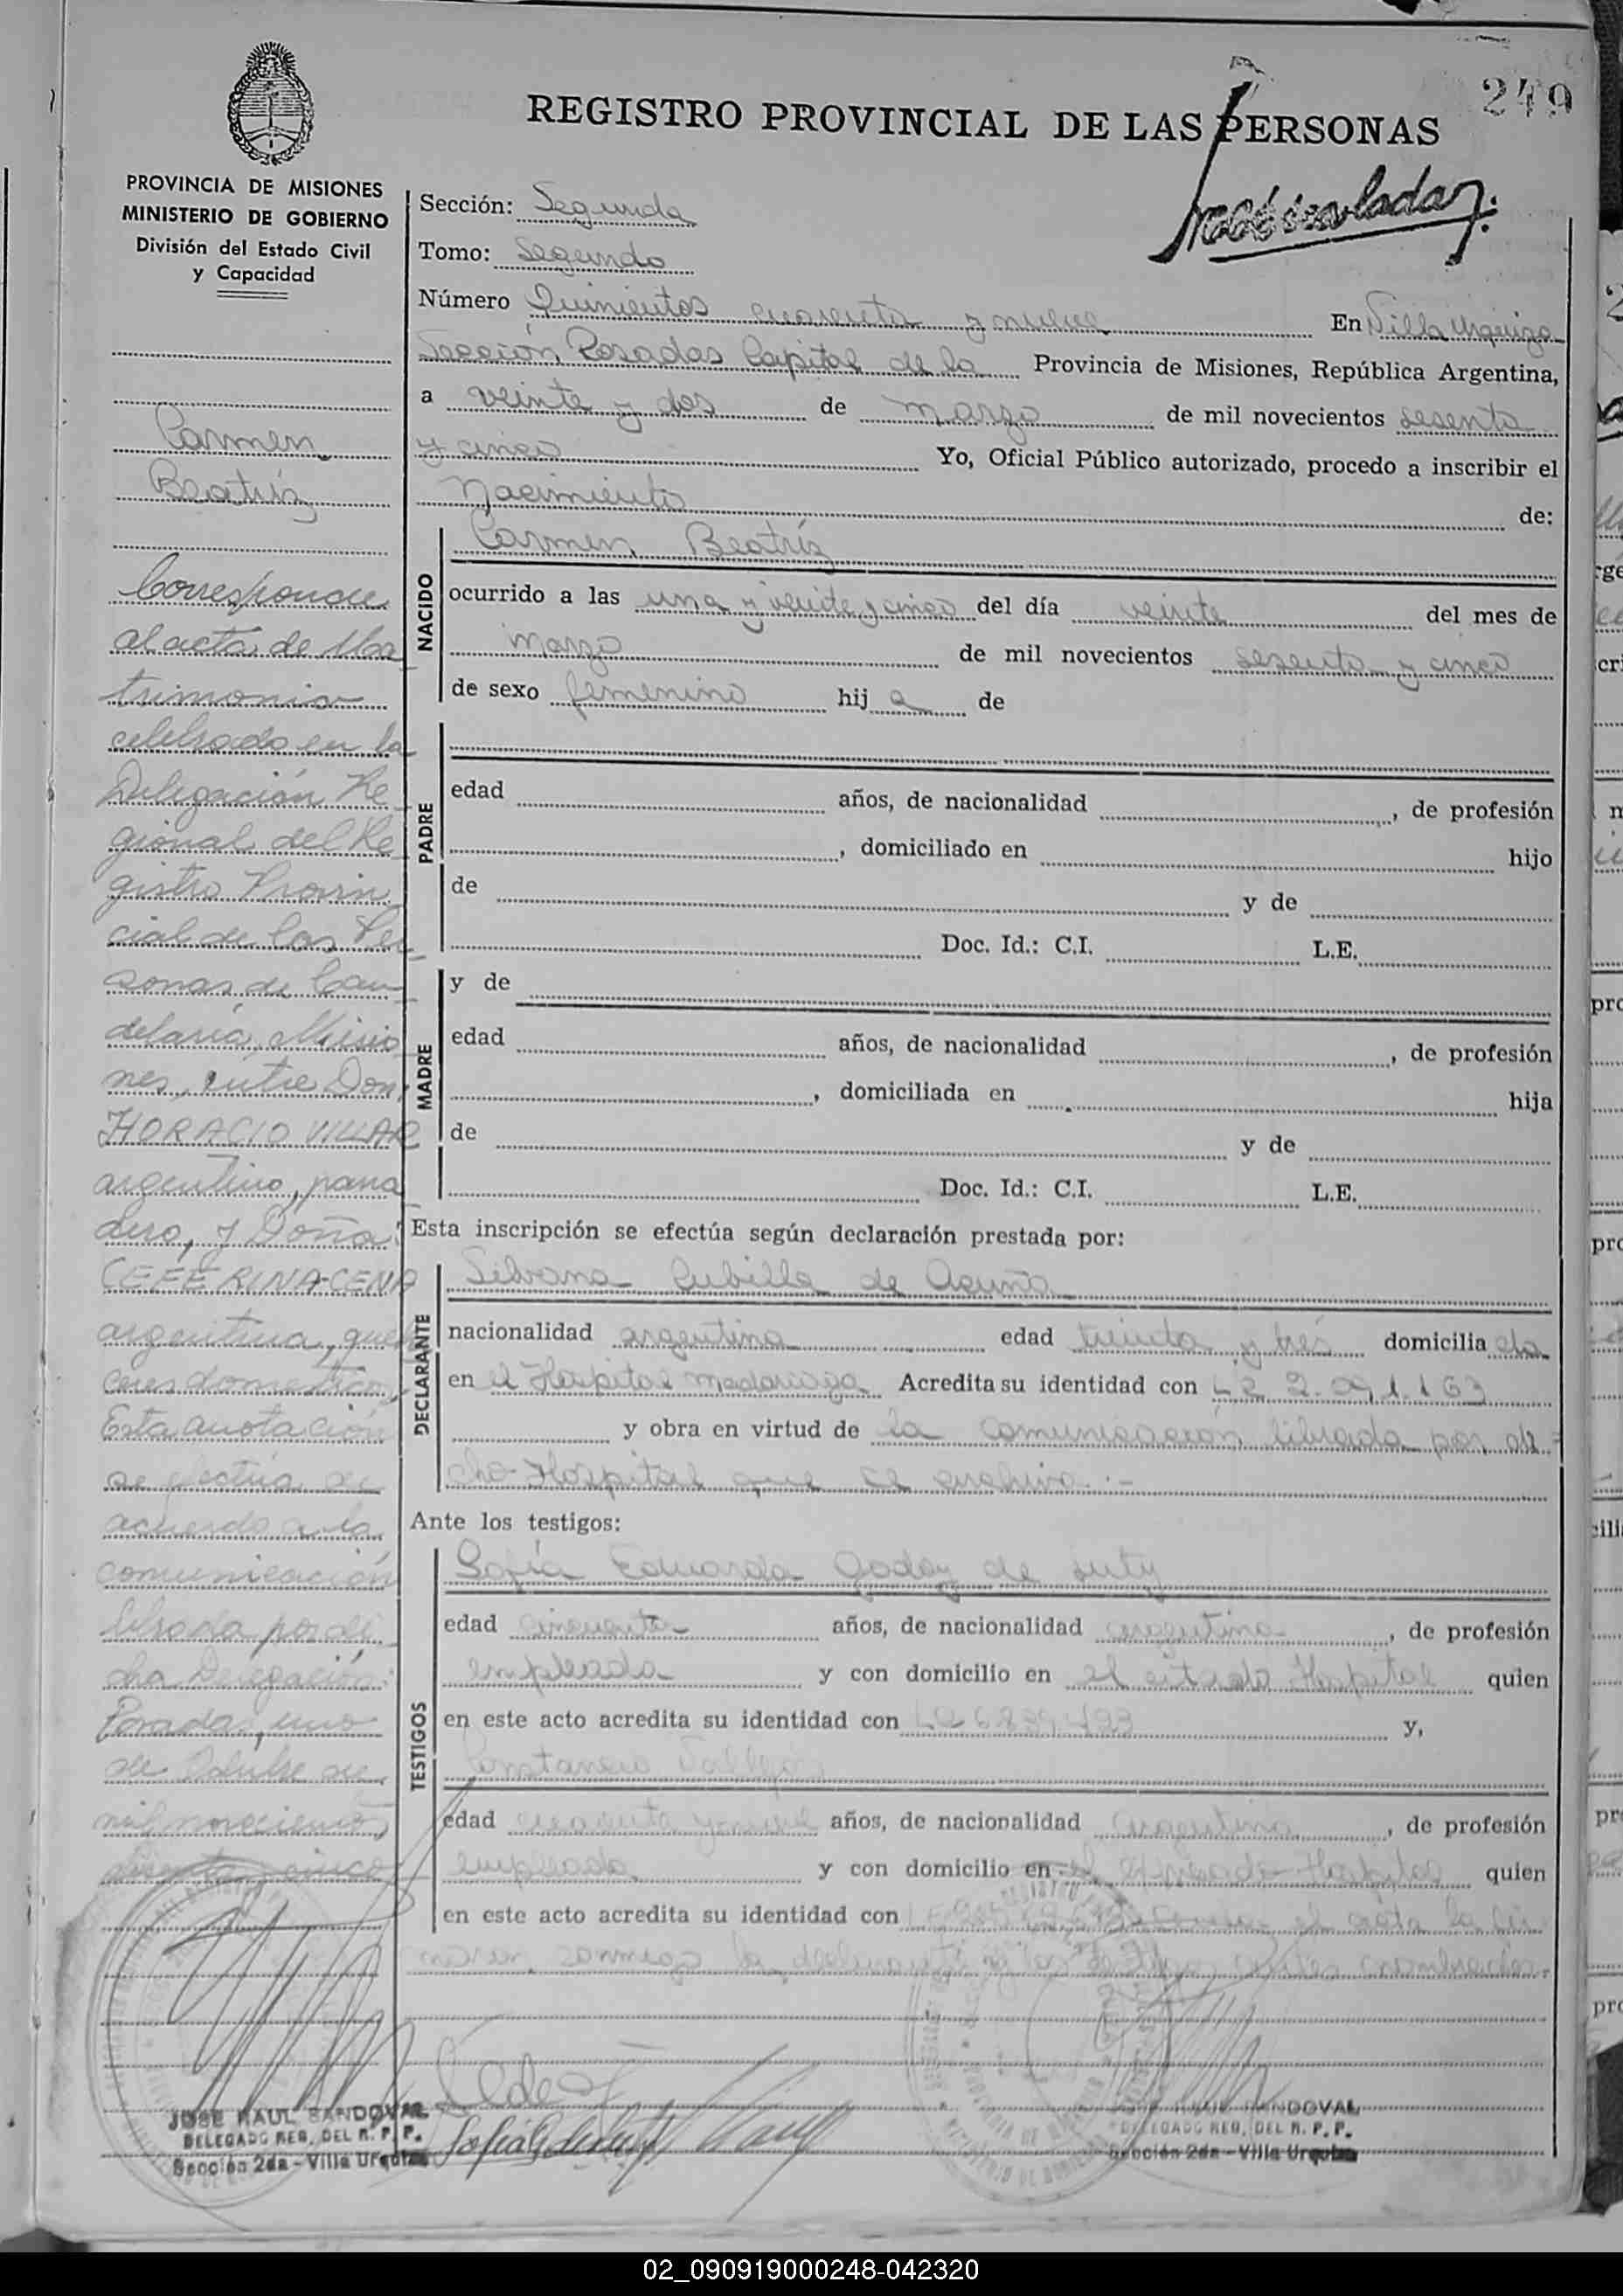 249
REGISTRO PROVINCIAL DE LAS PERSONAS
PROVINCIA DE MISIONES
MINISTERIO DE GOBIERNO
División del Estado Civil
y Capacidad
Carmen
Beatríz
Corresponde
al acta de Ma
trimonio
celebrado en la
Delegación Re
gional del Re
gistro Provin
cial de las Per
sonas de Can
delaria, Misio
nes, entre Don
HORACIO VILLAR
argentino, pana
dero, y Doña:
CEFERINA CENA
argentina, queha
ceres domesticos
Esta anotación
se efectúa de
acuerdo a la
comunicación
librada por di
cha Delegación:
Posadas, uno
de Octubre de
mil novecientos
sesenta y cinco
JOSE RAUL SANDOVAL
DELEGADO REG. DEL R. P. P.
Sección 2da - Villa Urquiza
Sección: Segunda
Tomo: Segundo
Número Quinientos cuarenta y nueve En Villa Urquiza
Sección Posadas Capital de la Provincia de Misiones, República Argentina,
a veinte y dos de marzo de mil novecientos sesenta
y cinco Yo, Oficial Público autorizado, procedo a inscribir el
Nacimiento de:
NACIDO
Carmen Beatríz
ocurrido a las una y veinte y cinco del día veinte del mes de
marzo de mil novecientos sesenta y cinco
de sexo femenino hij a de
PADRE
edad años, de nacionalidad , de profesión
, domiciliado en hijo
de y de
Doc. Id.: C.I. L.E.
MADRE
y de
edad años, de nacionalidad , de profesión
, domiciliada en hija
de y de
Doc. Id.: C.I. L.E.
Esta inscripción se efectúa según declaración prestada por:
DECLARANTE
Silvana Cubilla de Acuña
nacionalidad argentina edad treinta y tres domicilia da
en el Hospital Madariaga Acredita su identidad con
y obra en virtud de la comunicación librada por di
cho Hospital que se archiva.-
Ante los testigos:
TESTIGOS
Sofía Eduarda Godoy de
edad cincuenta años, de nacionalidad argentina , de profesión
empleada y con domicilio en el citado Hospital quien
en este acto acredita su identidad con y,
edad cuarenta y nueve años, de nacionalidad argentina , de profesión
empleada y con domicilio en el Hospital quien
en este acto acredita su identidad con el acta la fir
maron conmigo la declarante y los testigos antes nombrados.
SANDOVAL
DELEGADO REG. DEL R. P. P.
Sección 2da - Villa Urquiza
02_090919000248-042320